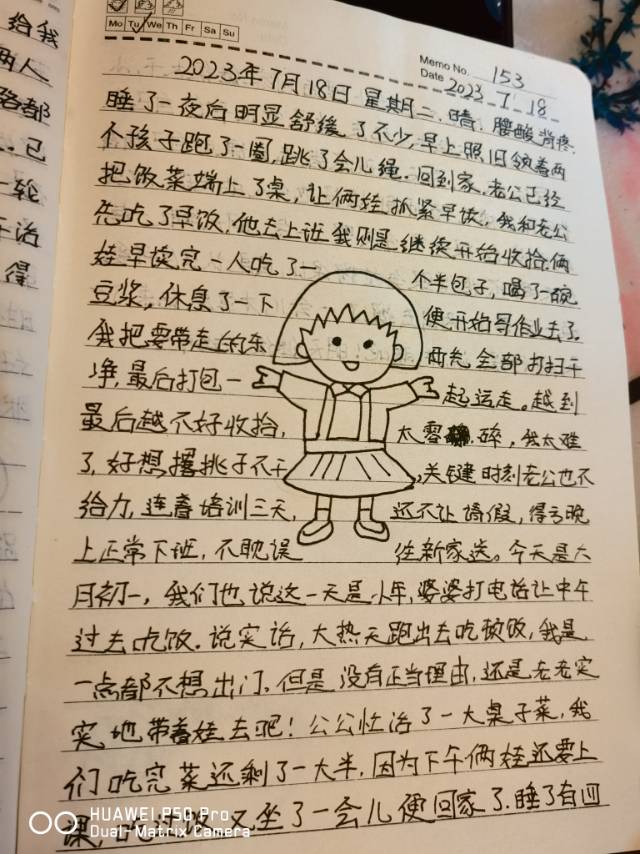 给我
两人
路都
.已
一轮
干治
得
Mo Tu We Th Fr Sa Su
Memo No. 153
Date 2023.7.18
2023年7月18日 星期二.晴.腰酸背疼.
睡了一夜后明显舒缓了不少,早上照旧领着两
个孩子跑了一圈,跳了会儿绳.回到家.老公已经
把饭菜端上了桌,让俩娃抓紧早读,我和老公
先吃了早饭,他去上班我则是继续开始收拾.俩
娃早读完一人吃了一个半包子,喝了一碗
豆浆,休息了一下便开始写作业去了.
我把要带走的东西先全部打扫干
净,最后打包一起运走。越到
最后越不好收拾,太零碎,我太难
了,好想撂挑子不干,关键时刻老公也不
给力,连着培训三天,还不让请假,得亏晚
上正常下班,不耽误往新家送。今天是六
月初一,我们也说这一天是小年,婆婆打电话让中午
过去吃饭.说实话,大热天跑出去吃顿饭,我是
一点都不想出门.但是没有正当理由,还是老老实
实地带着娃去吧!公公忙活了一大桌子菜,我
们吃完菜还剩了一大半.因为下午俩娃还要上
课,吃过饭又坐了一会儿便回家了.睡了有四
HUAWEI P50 Pro
Dual-Matrix Camera